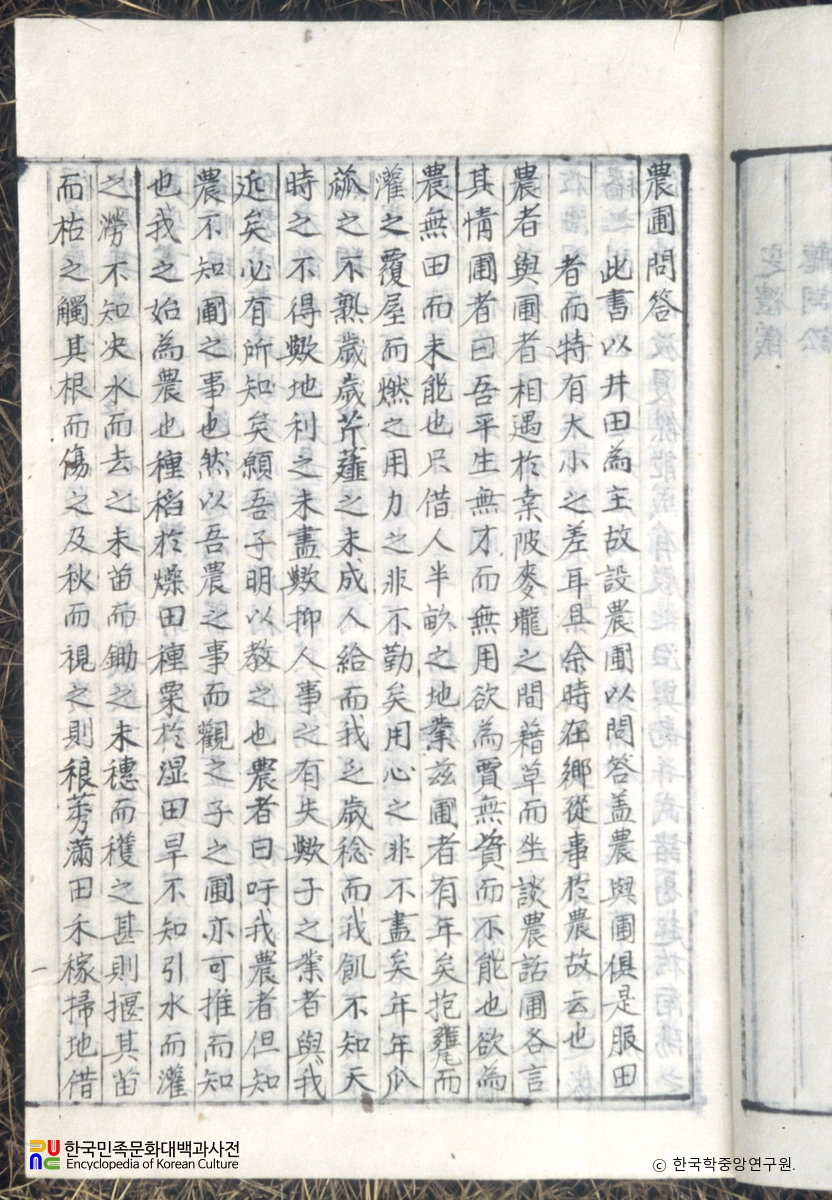 農圃問答
此書以井田為主故設農圃以問答盖農與圃俱是服田
者而特有大小之差耳且余時在鄉從事於農故云也
農者與圃者相遇於桒陂麥壠之間藉草而坐談農話圃各言
其情圃者曰吾平生無才而無用欲為賈無資而不能也欲為
農無田而未能也只借人半畝之地業茲圃者有年矣抱甕而
灌之覆屋而燃之用力之非不勤矣用心之非不盡矣年年瓜
苽之不熟歲歲芹薤之未成人給而我乏歲稔而我飢不知天
時之不得歟地利之未盡歟抑人事之有失歟子之業者與我
近矣必有所知矣願吾子明以教之也農者曰吁我農者但知
農不知圃之事也然以吾農之事而觀之子之圃亦可推而知
也我之始為農也種稻於燥田種粟於湿田旱不知引水而灌
之澇不知决水而去之未苗而鋤之未穗而穫之甚則揠其苗
而枯之觸其根而傷之及秋而視之則稂莠滿田禾稼掃地借
一
한국민족문화대백과사전
Encyclopedia of Korean Culture
ⓒ 한국학중앙연구원.